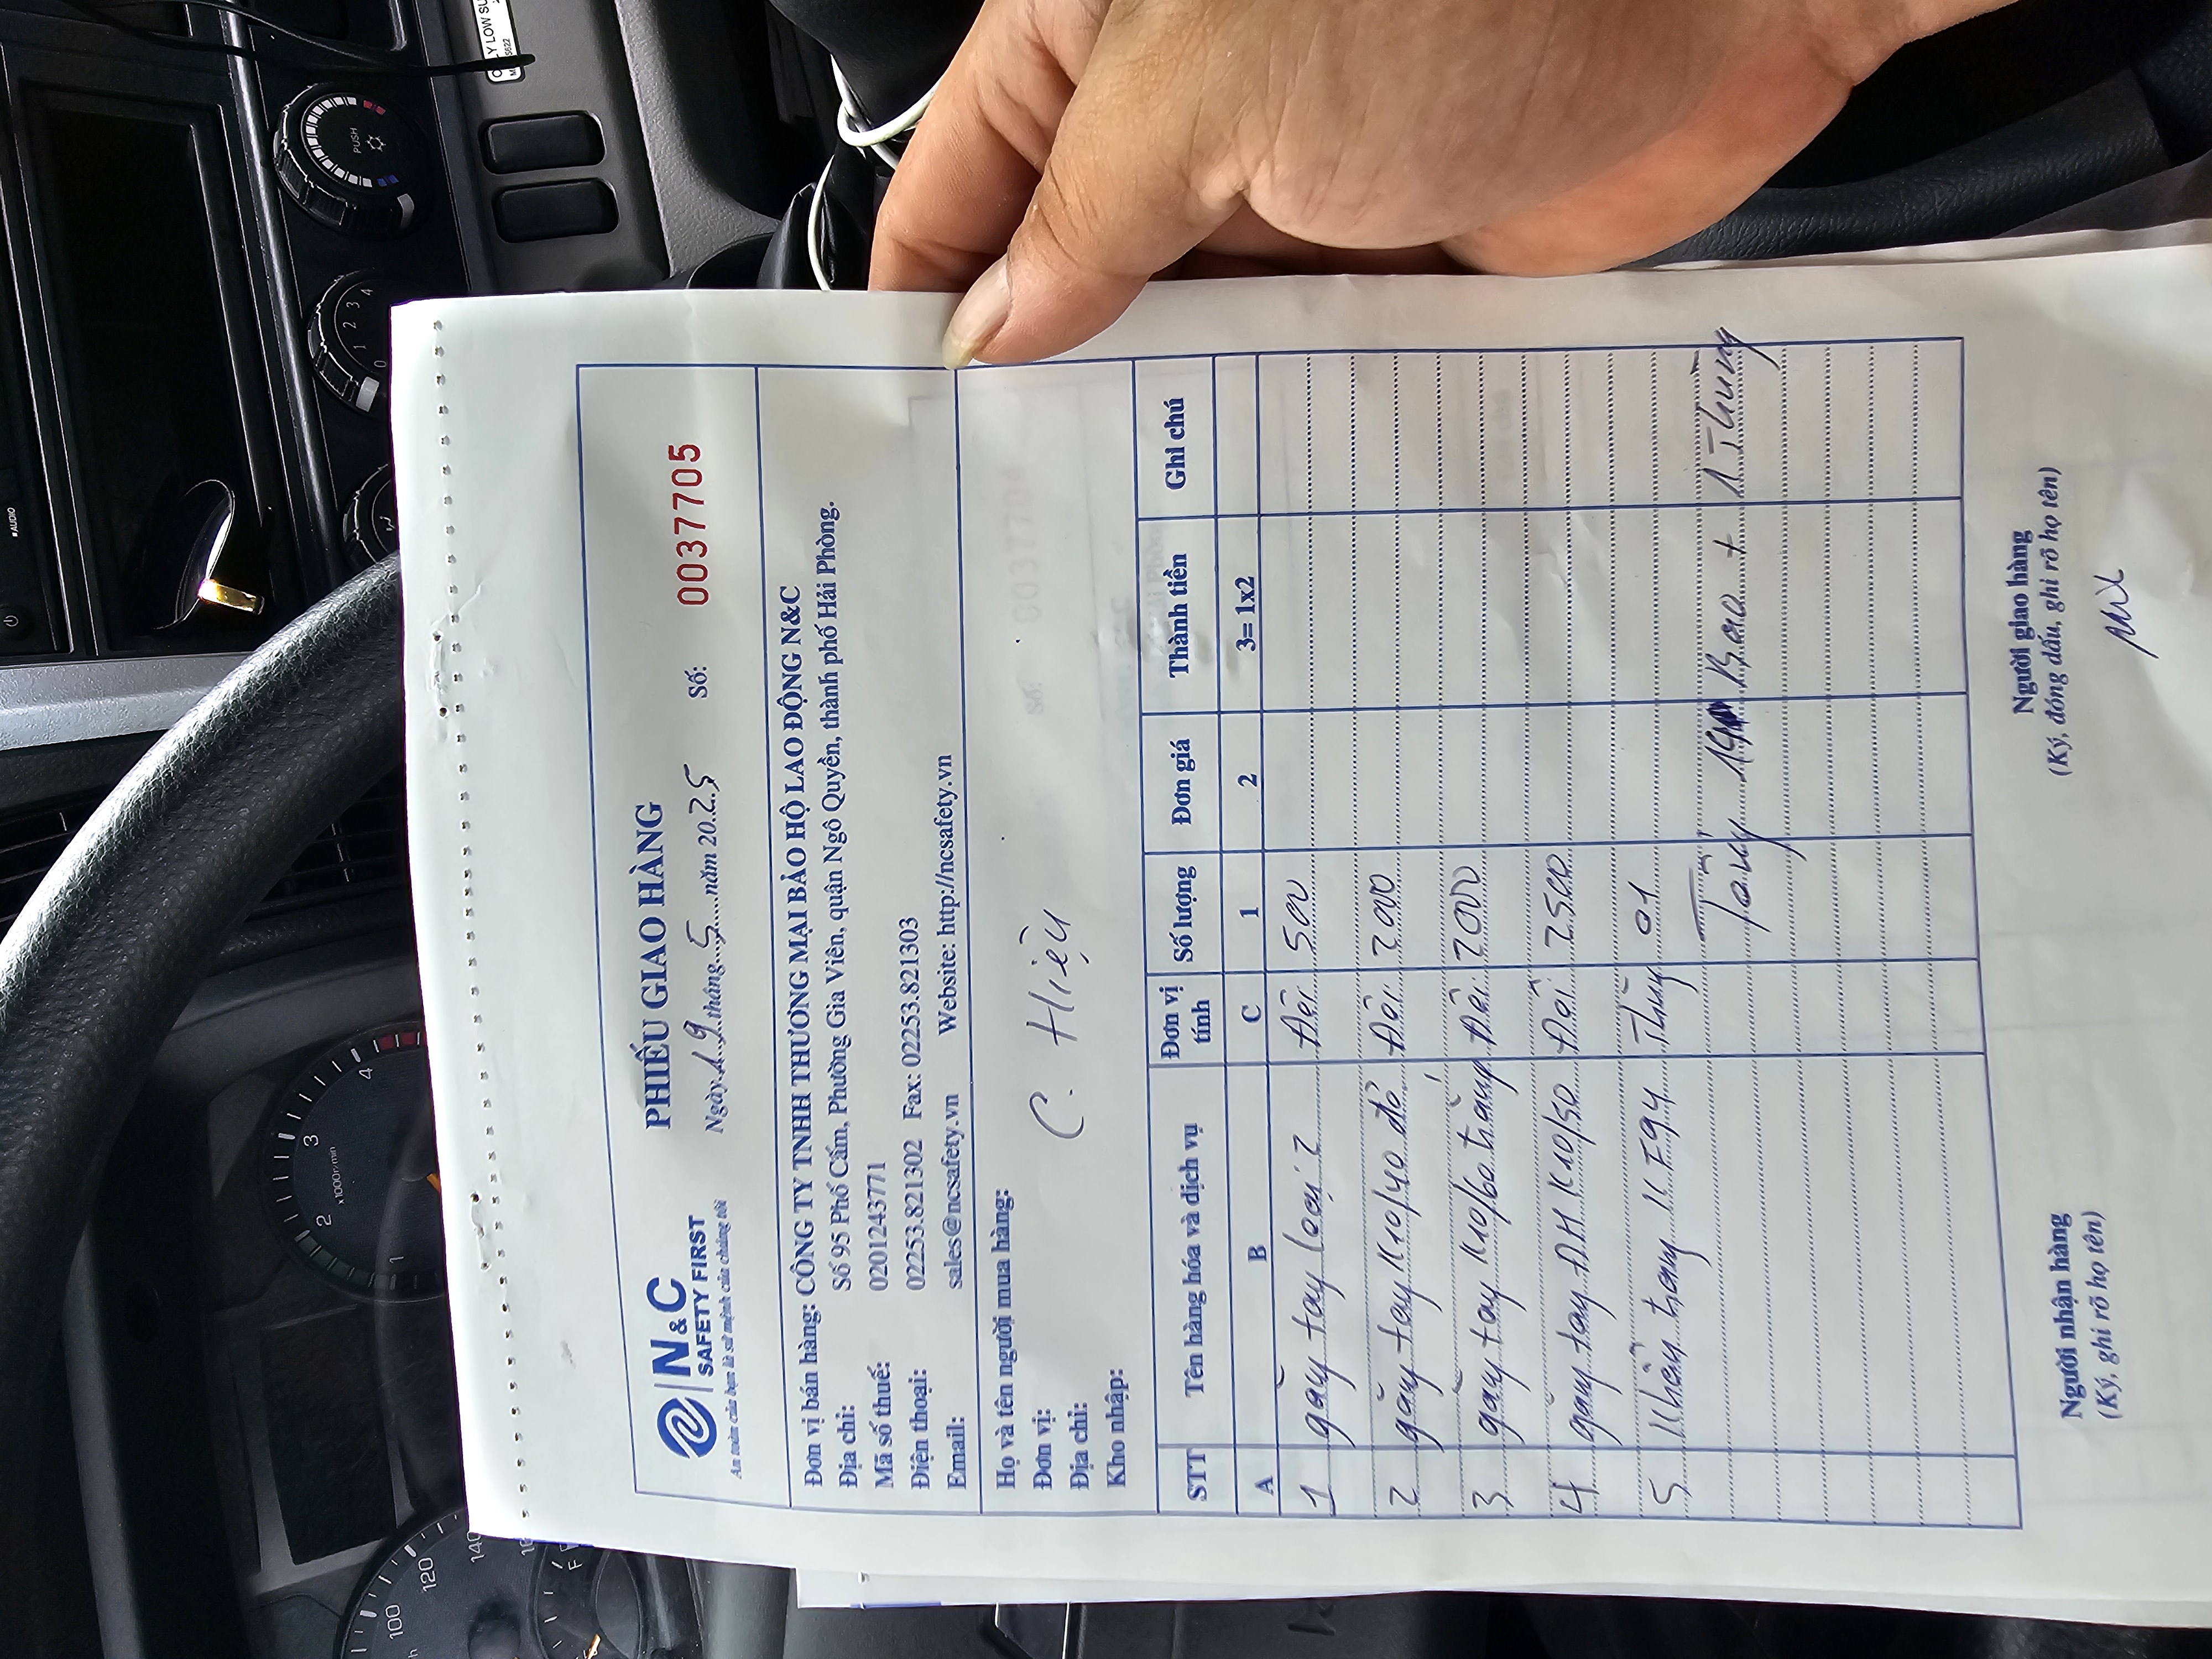 N&C
SAFETY FIRST
An toàn của bạn là sứ mệnh của chúng tôi
PHIẾU GIAO HÀNG
Ngày 19 tháng 5 năm 2025 Số: 0037705
Đơn vị bán hàng: CÔNG TY TNHH THƯƠNG MẠI BẢO HỘ LAO ĐỘNG N&C
Địa chỉ: Số 95 Phố Cấm, Phường Gia Viên, quận Ngô Quyền, thành phố Hải Phòng.
Mã số thuế: 0201243771
Điện thoại: 02253.821302 Fax: 02253.821303
Email: sales@ncsafety.vn Website: http://ncsafety.vn
Họ và tên người mua hàng:
Đơn vị: C. Hiệu
Địa chỉ:
Kho nhập:
STT Tên hàng hóa và dịch vụ Đơn vị tính Số lượng Đơn giá Thành tiền Ghi chú
A B C 1 2 3= 1x2
1 găng tay loại 2 Đôi 500
2 găng tay K10/40 đỏ Đôi 2000
3 găng tay K10/60 trắng Đôi 2000
4 găng tay ĐH K10/50 Đôi 2500
5 Khẩu trang KF94 Thùng 01
Tổng 14 Bao + 1 Thùng
Người nhận hàng
(Ký, ghi rõ họ tên)
Người giao hàng
(Ký, đóng dấu, ghi rõ họ tên)
AUDIO
PUSH
0 1 2 3 4
1 2 3 4
x1000r/min
100 120 140
F